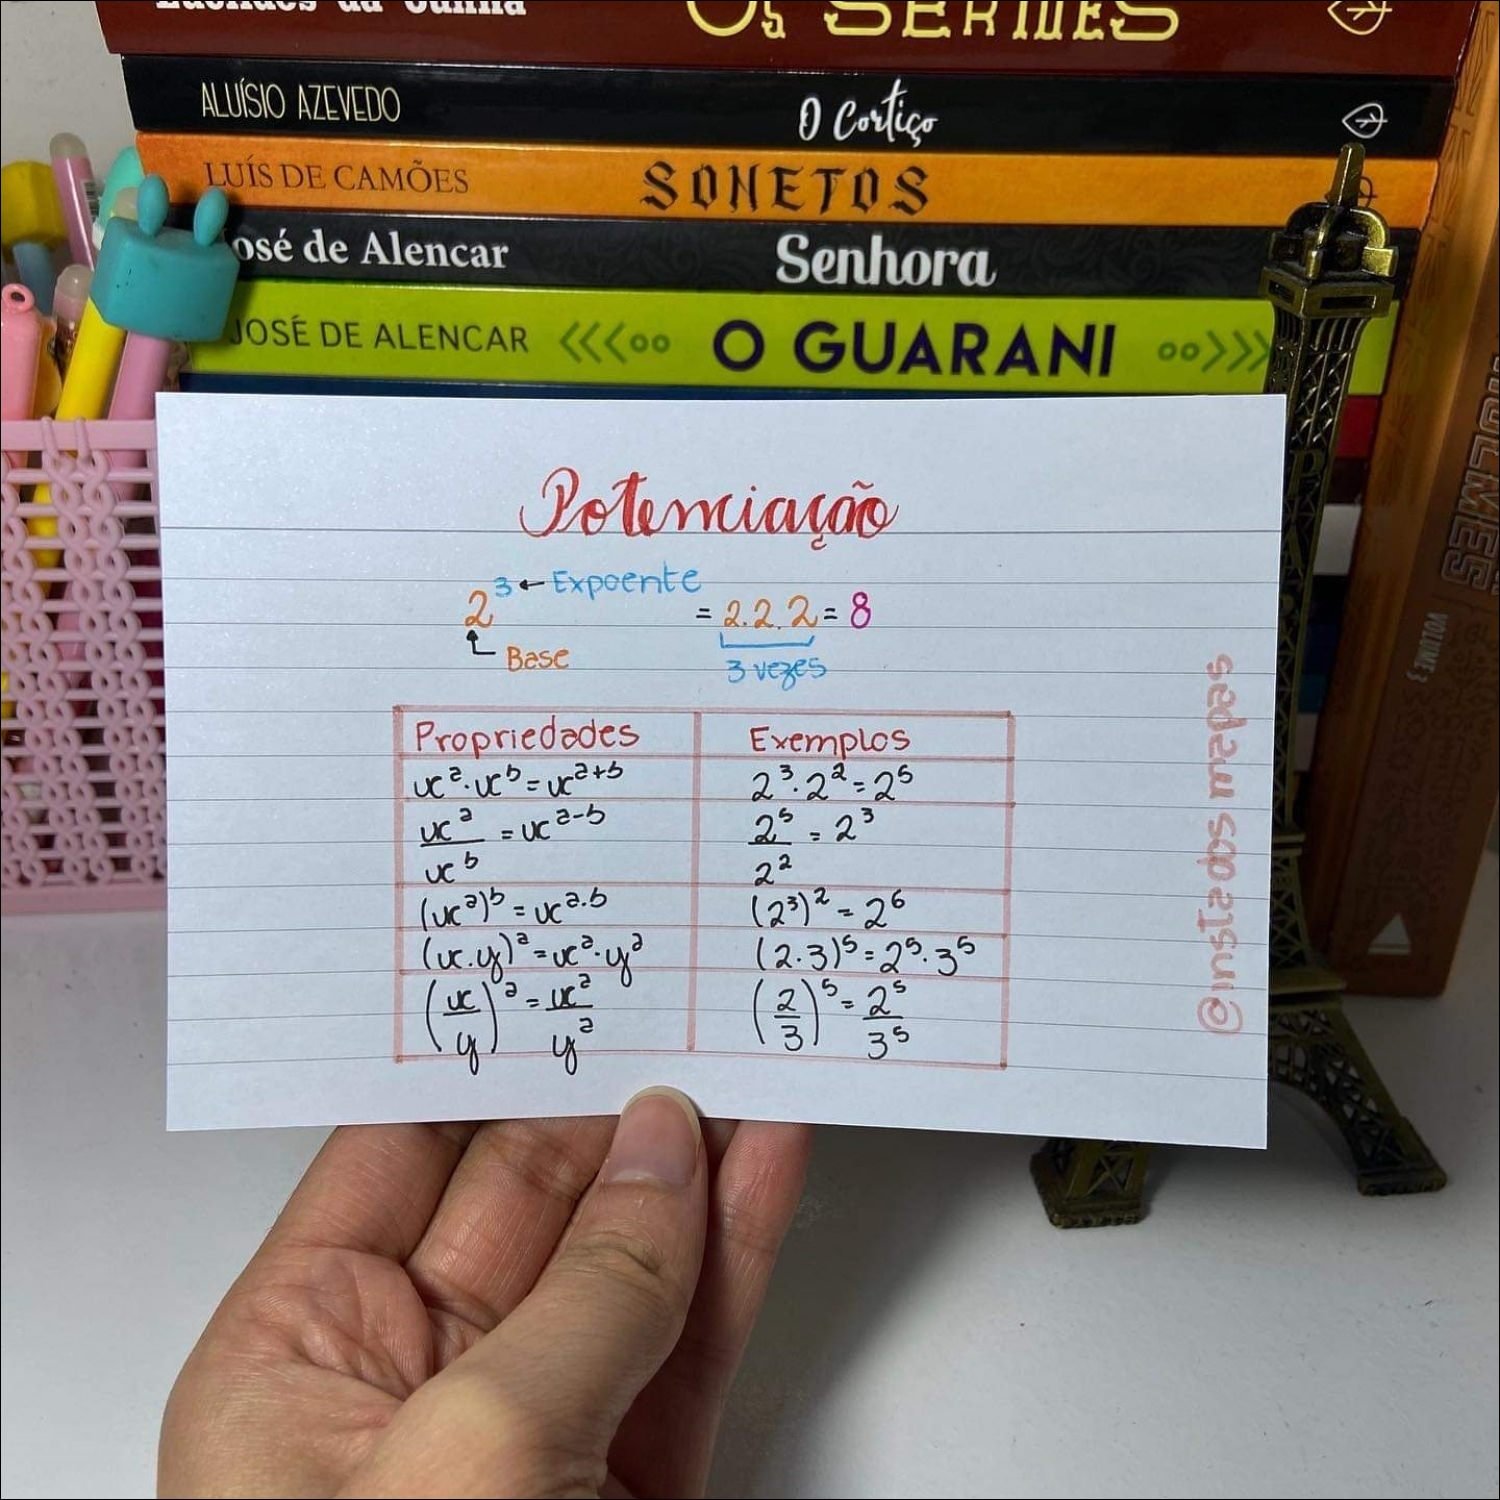 Euclides da Cunha OS SERTÕES
ALUÍSIO AZEVEDO O Cortiço
LUÍS DE CAMÕES SONETOS
José de Alencar Senhora
JOSÉ DE ALENCAR <<<oo O GUARANI oo>>>
Potenciação
2³ ← Expoente
= 2.2.2 = 8
Base
3 vezes
Propriedades Exemplos
xᵃ · xᵇ = xᵃ⁺ᵇ 2³ · 2² = 2⁵
xᵃ/xᵇ = xᵃ⁻ᵇ 2⁵/2² = 2³
(xᵃ)ᵇ = xᵃ·ᵇ (2³)² = 2⁶
(x.y)ᵃ = xᵃ · yᵃ (2·3)⁵ = 2⁵ · 3⁵
(x/y)ᵃ = xᵃ/yᵃ (2/3)⁵ = 2⁵/3⁵
@instadosmapas
VOLUME 3